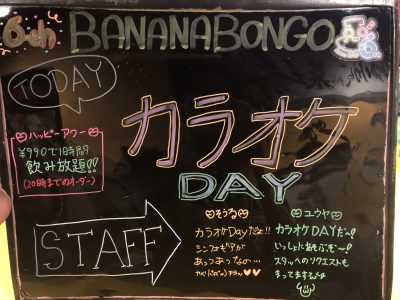 6th BANANABONGO
TODAY
カラオケ
DAY
ハッピーアワー
¥990で1時間
飲み放題!!
(20時までのオーダー)
STAFF
そうる
カラオケDayだよ!!
あつあつっなの…
ユウヤ
カラオケDAYだよ〜!
いっしょにあそぶぞ〜!
スタッフへのリクエストも
まってますよ